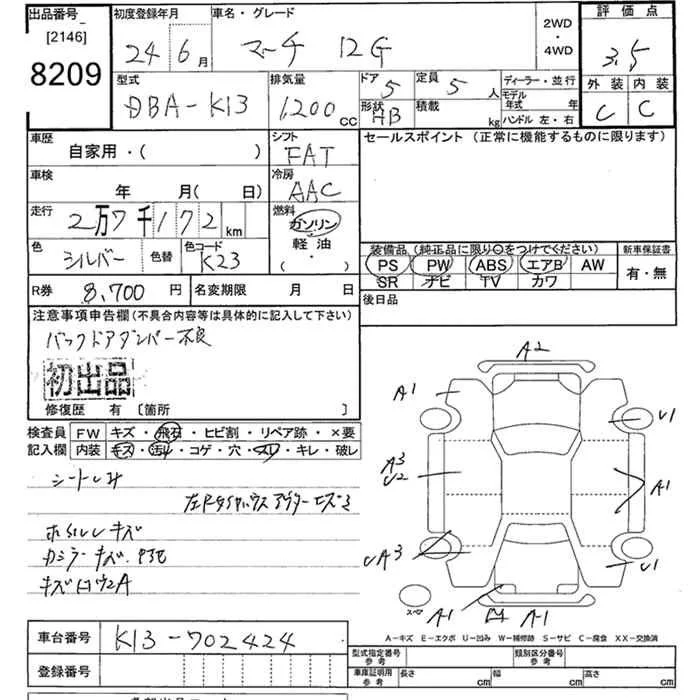 出品番号 初度登録年月 車名・グレード 2WD・4WD 評価点
[2146]
8209 24年6月 マーチ 12G 3.5
型式 排気量 ドア 5 定員 5人 ディーラー・並行 外装 内装
DBA-K13 1200cc 形状 HB 積載 kg モデル年式 年 ハンドル 左・右 C C
車歴 自家用・( ) シフト FAT セールスポイント (正常に機能するものに限ります)
車検 年 月( 日) 冷房 AAC
走行 2万7千172km 燃料 ガソリン・軽油・( )
色 シルバー 色替 色コード K23
装備品(純正品に限り○をつけてください) 新車保証書
PS PW ABS エアB AW 有・無
SR ナビ TV カワ
R券 8,700円 名変期限 月 日 後日品
注意事項申告欄(不具合内容等は具体的に記入して下さい)
バックドアダンパー不良
初出品
修復歴 有 [箇所 ]
検査員 FW キズ・飛石・ヒビ割・リペア跡・×要
記入欄 内装 キズ・汚レ・コゲ・穴・スレ・キレ・破レ
シートしみ
キズ
キズ
A2
A1
U1
A3
U2
A1
UA3
U1
A1
A1
スペア
A－キズ E－エクボ U－凹み W－補修跡 S－サビ C－腐食 XX－交換済
車台番号 K13-702424
登録番号
型式指定番号 参考 類別区分番号 参考
車庫証明用 参考 長さ cm 幅 cm 高さ cm